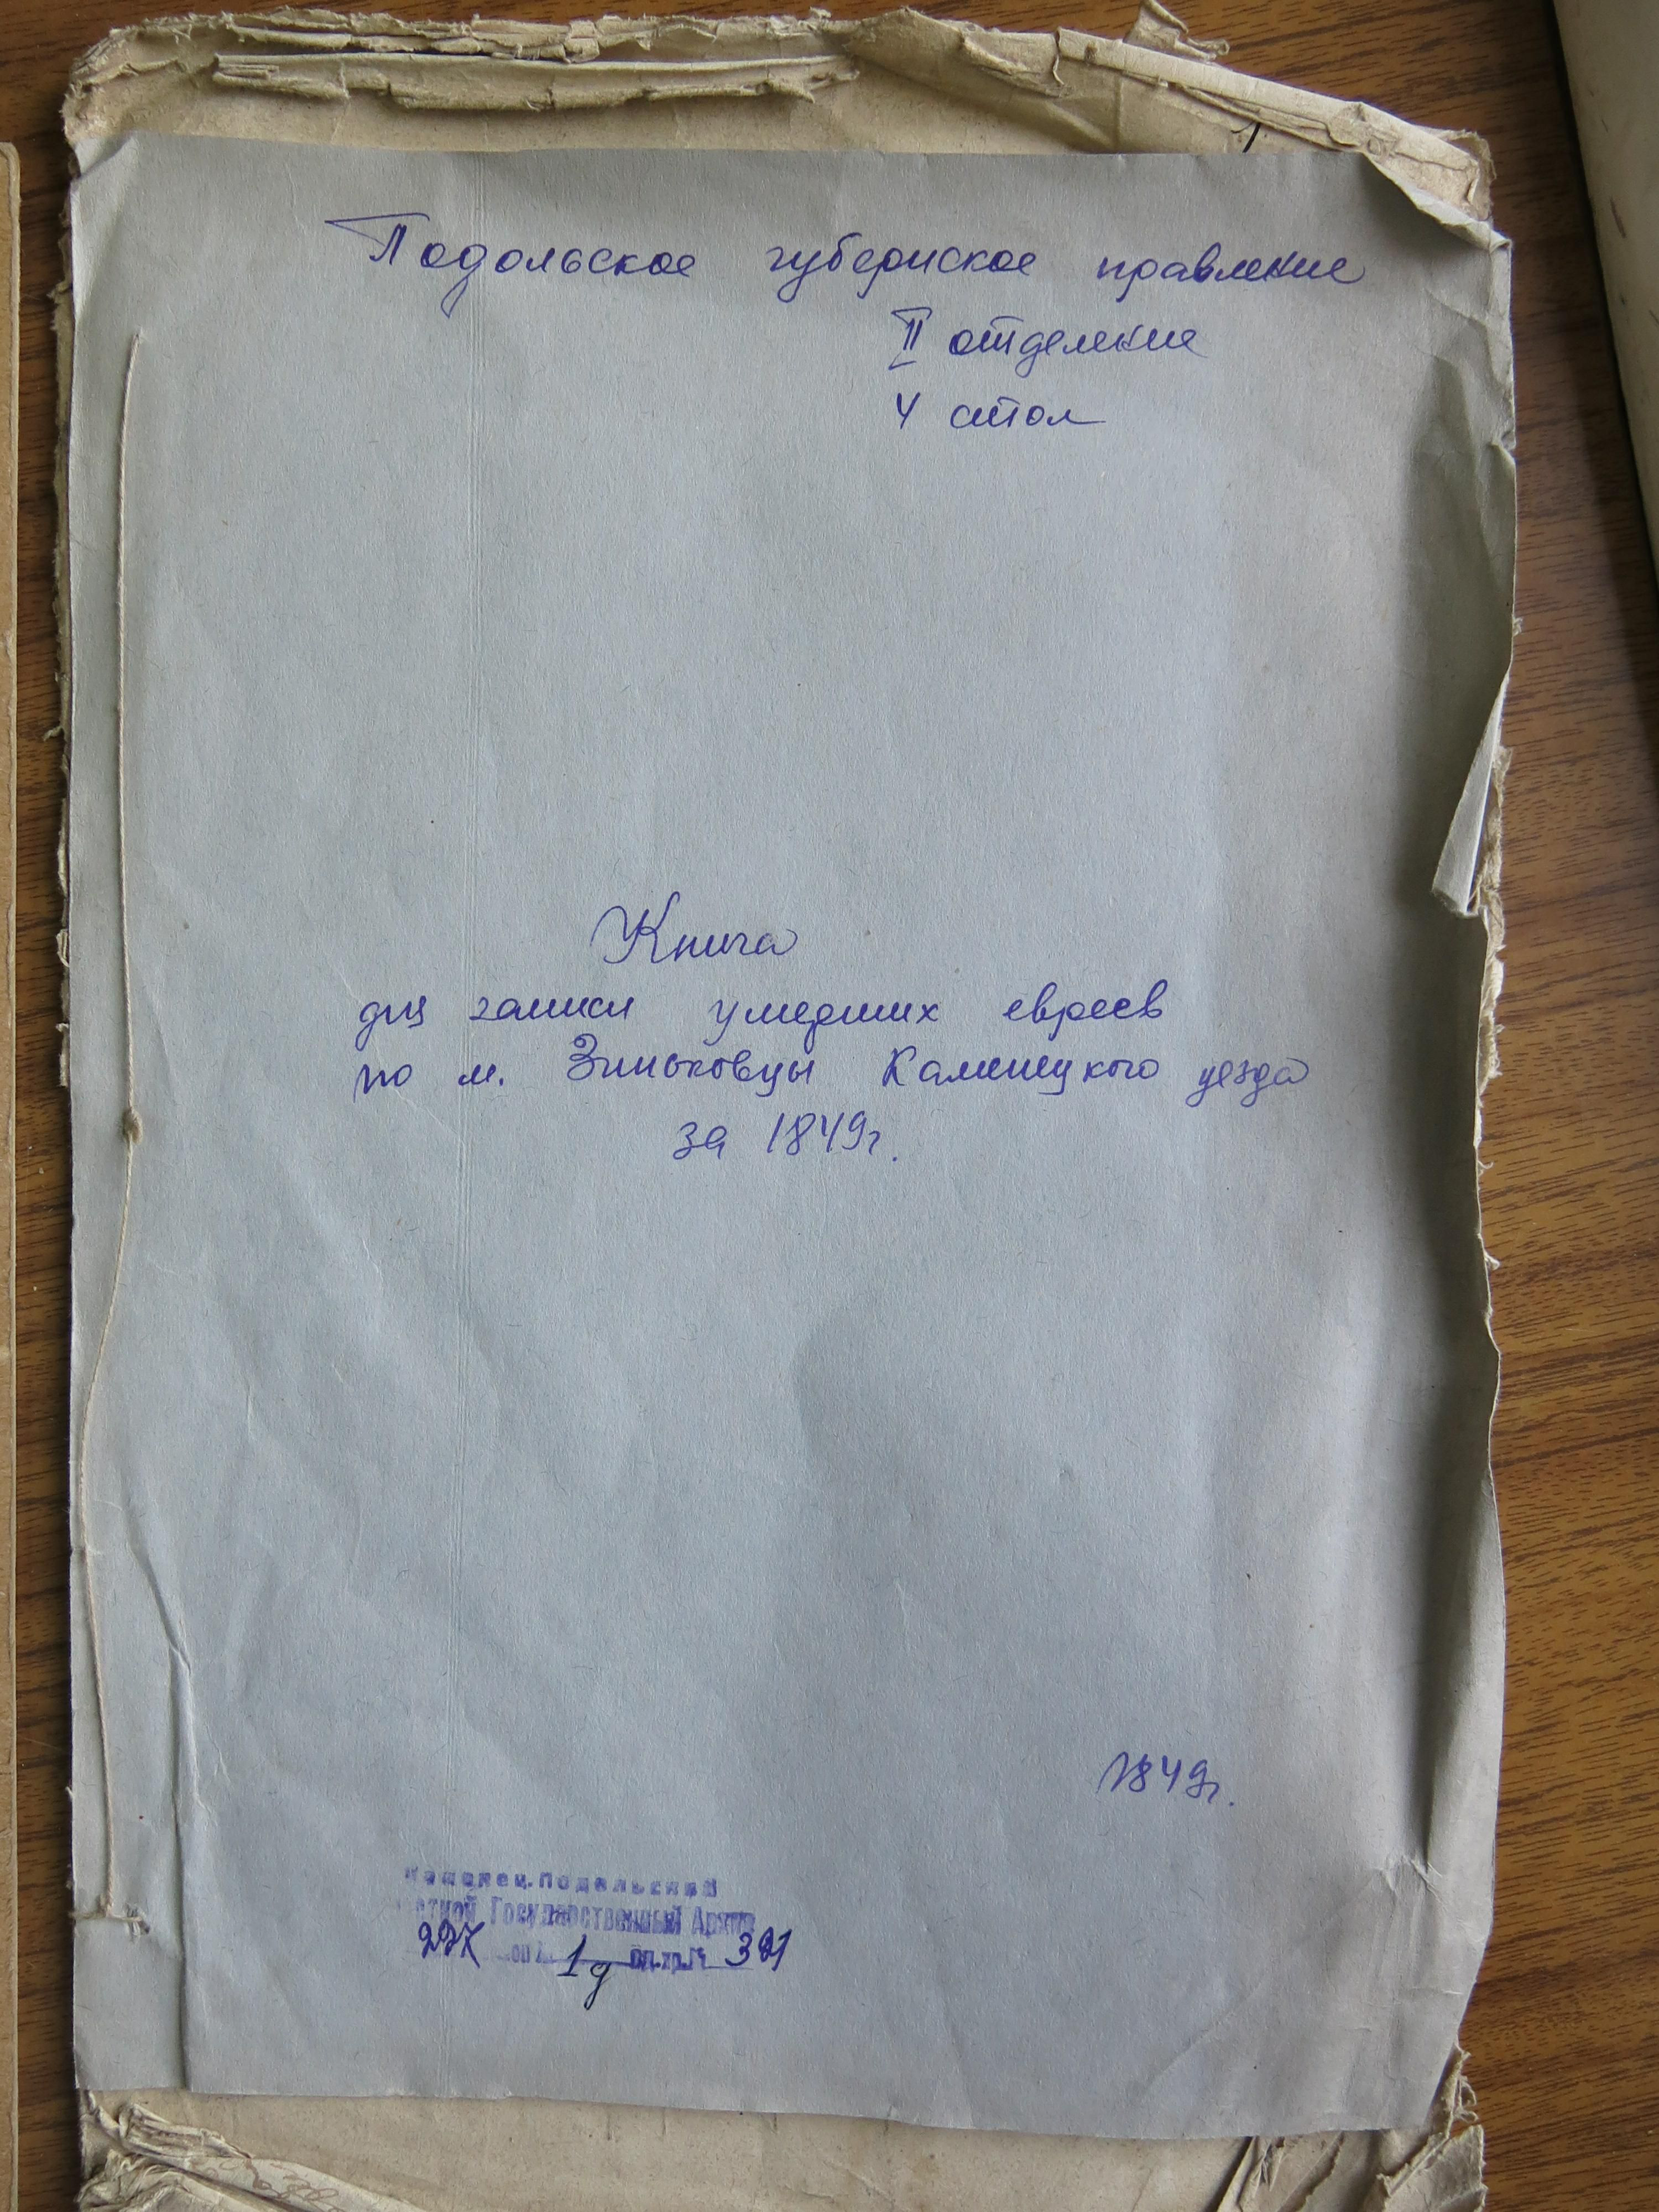 1
Подольское губернское правление
II отделение
4 стол
Книга
для записи умерших евреев
по м. Зиньковцы Каменецкого уезда
за 1849г.
1849г.
Каменец.Подольский
Государственный Архив
227 1д 391